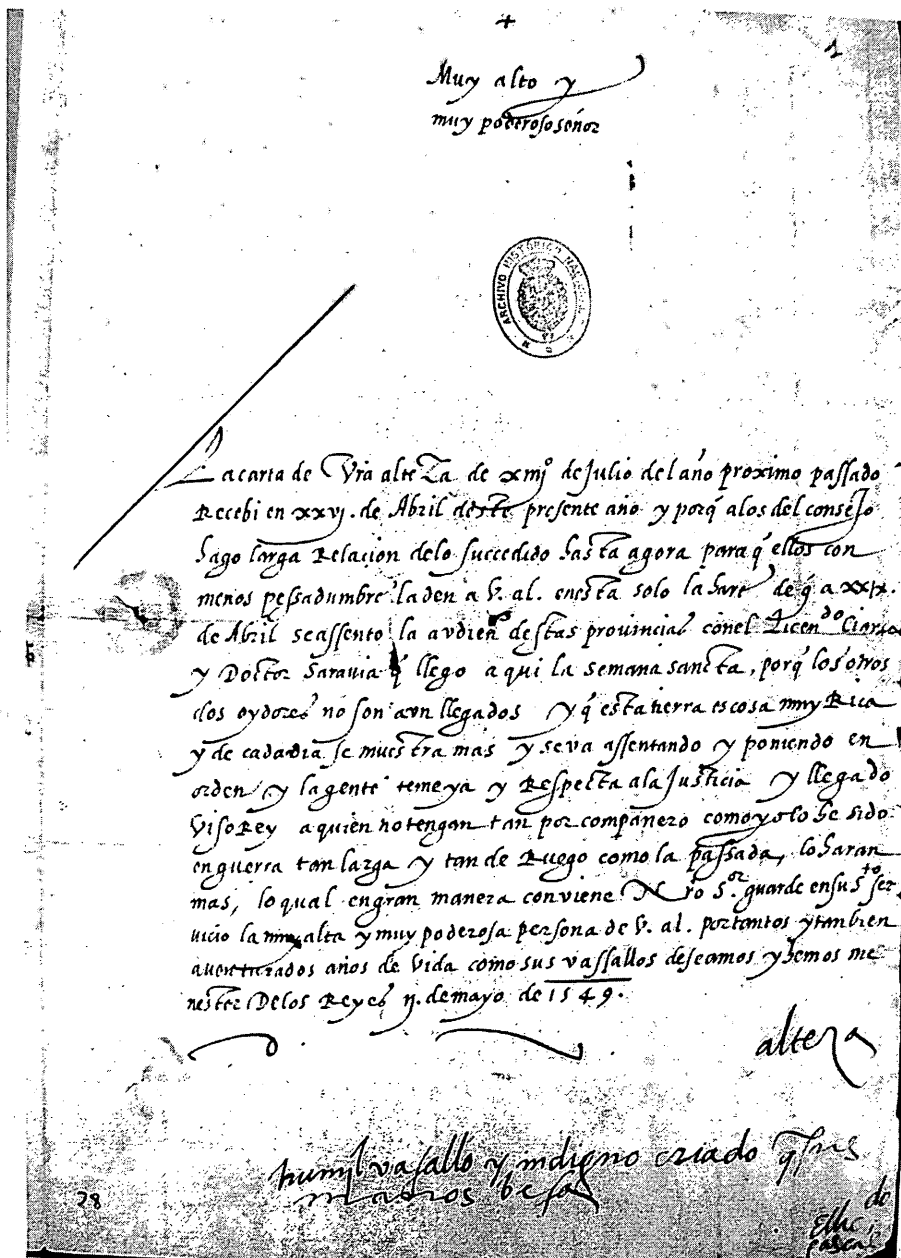 +
1
Muy alto y
muy poderoso señor
ARCHIVO HISTÓRICO NACIONAL
La carta de Vra alteza de xmj° de Julio del año proximo passado
Recebi en xxvj. de Abril deste presente año y porq̃ alos del consejo
hago larga Relacion delo succedido hasta agora para q̃ ellos con
menos pessadumbre la den a V. al. enesta solo la hare de q̃ a xxix.
de Abril se assento la avdienª destas provincias conel Licendo Cianca
y Doctor Saravia q̃ llego aqui la semana sancta, porq̃ los otros
dos oydores no son avn llegados y q̃ esta tierra es cosa muy Rica
y de cada dia se muestra mas y se va assentando y poniendo en
orden y la gente teme ya y Respecta ala Justicia y llegado
VisoRey a quien no tengan tan por compañero como yo lo he sido
en guerra tan larga y tan de Ruego como la passada, lo haran
mas, lo qual en gran manera conviene Nro S.or guarde en su s.to ser
uicio la muy alta y muy poderosa persona de V. al. por tantos y tan bien
auenturados años de vida como sus vassallos deseamos y hemos me
nester De los Reyes ij. de mayo de 1549.
alteza
humil vasallo y indigno criado q̃ sus
manos besa
28